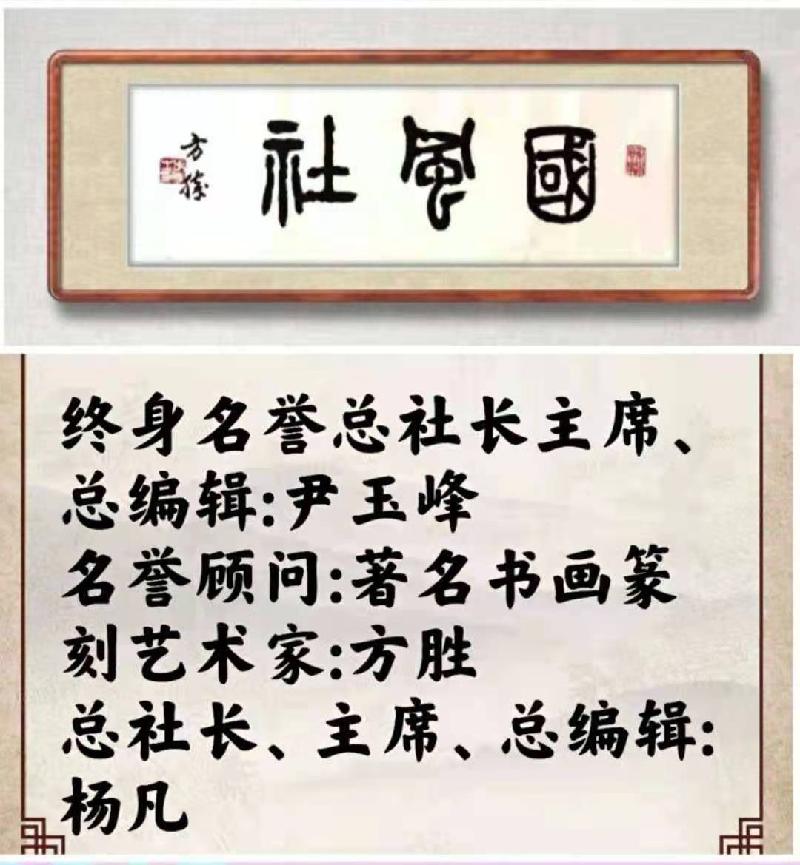 國風社
方勝
终身名誉总社长主席、
总编辑:尹玉峰
名誉顾问:著名书画篆
刻艺术家:方胜
总社长、主席、总编辑:
杨凡